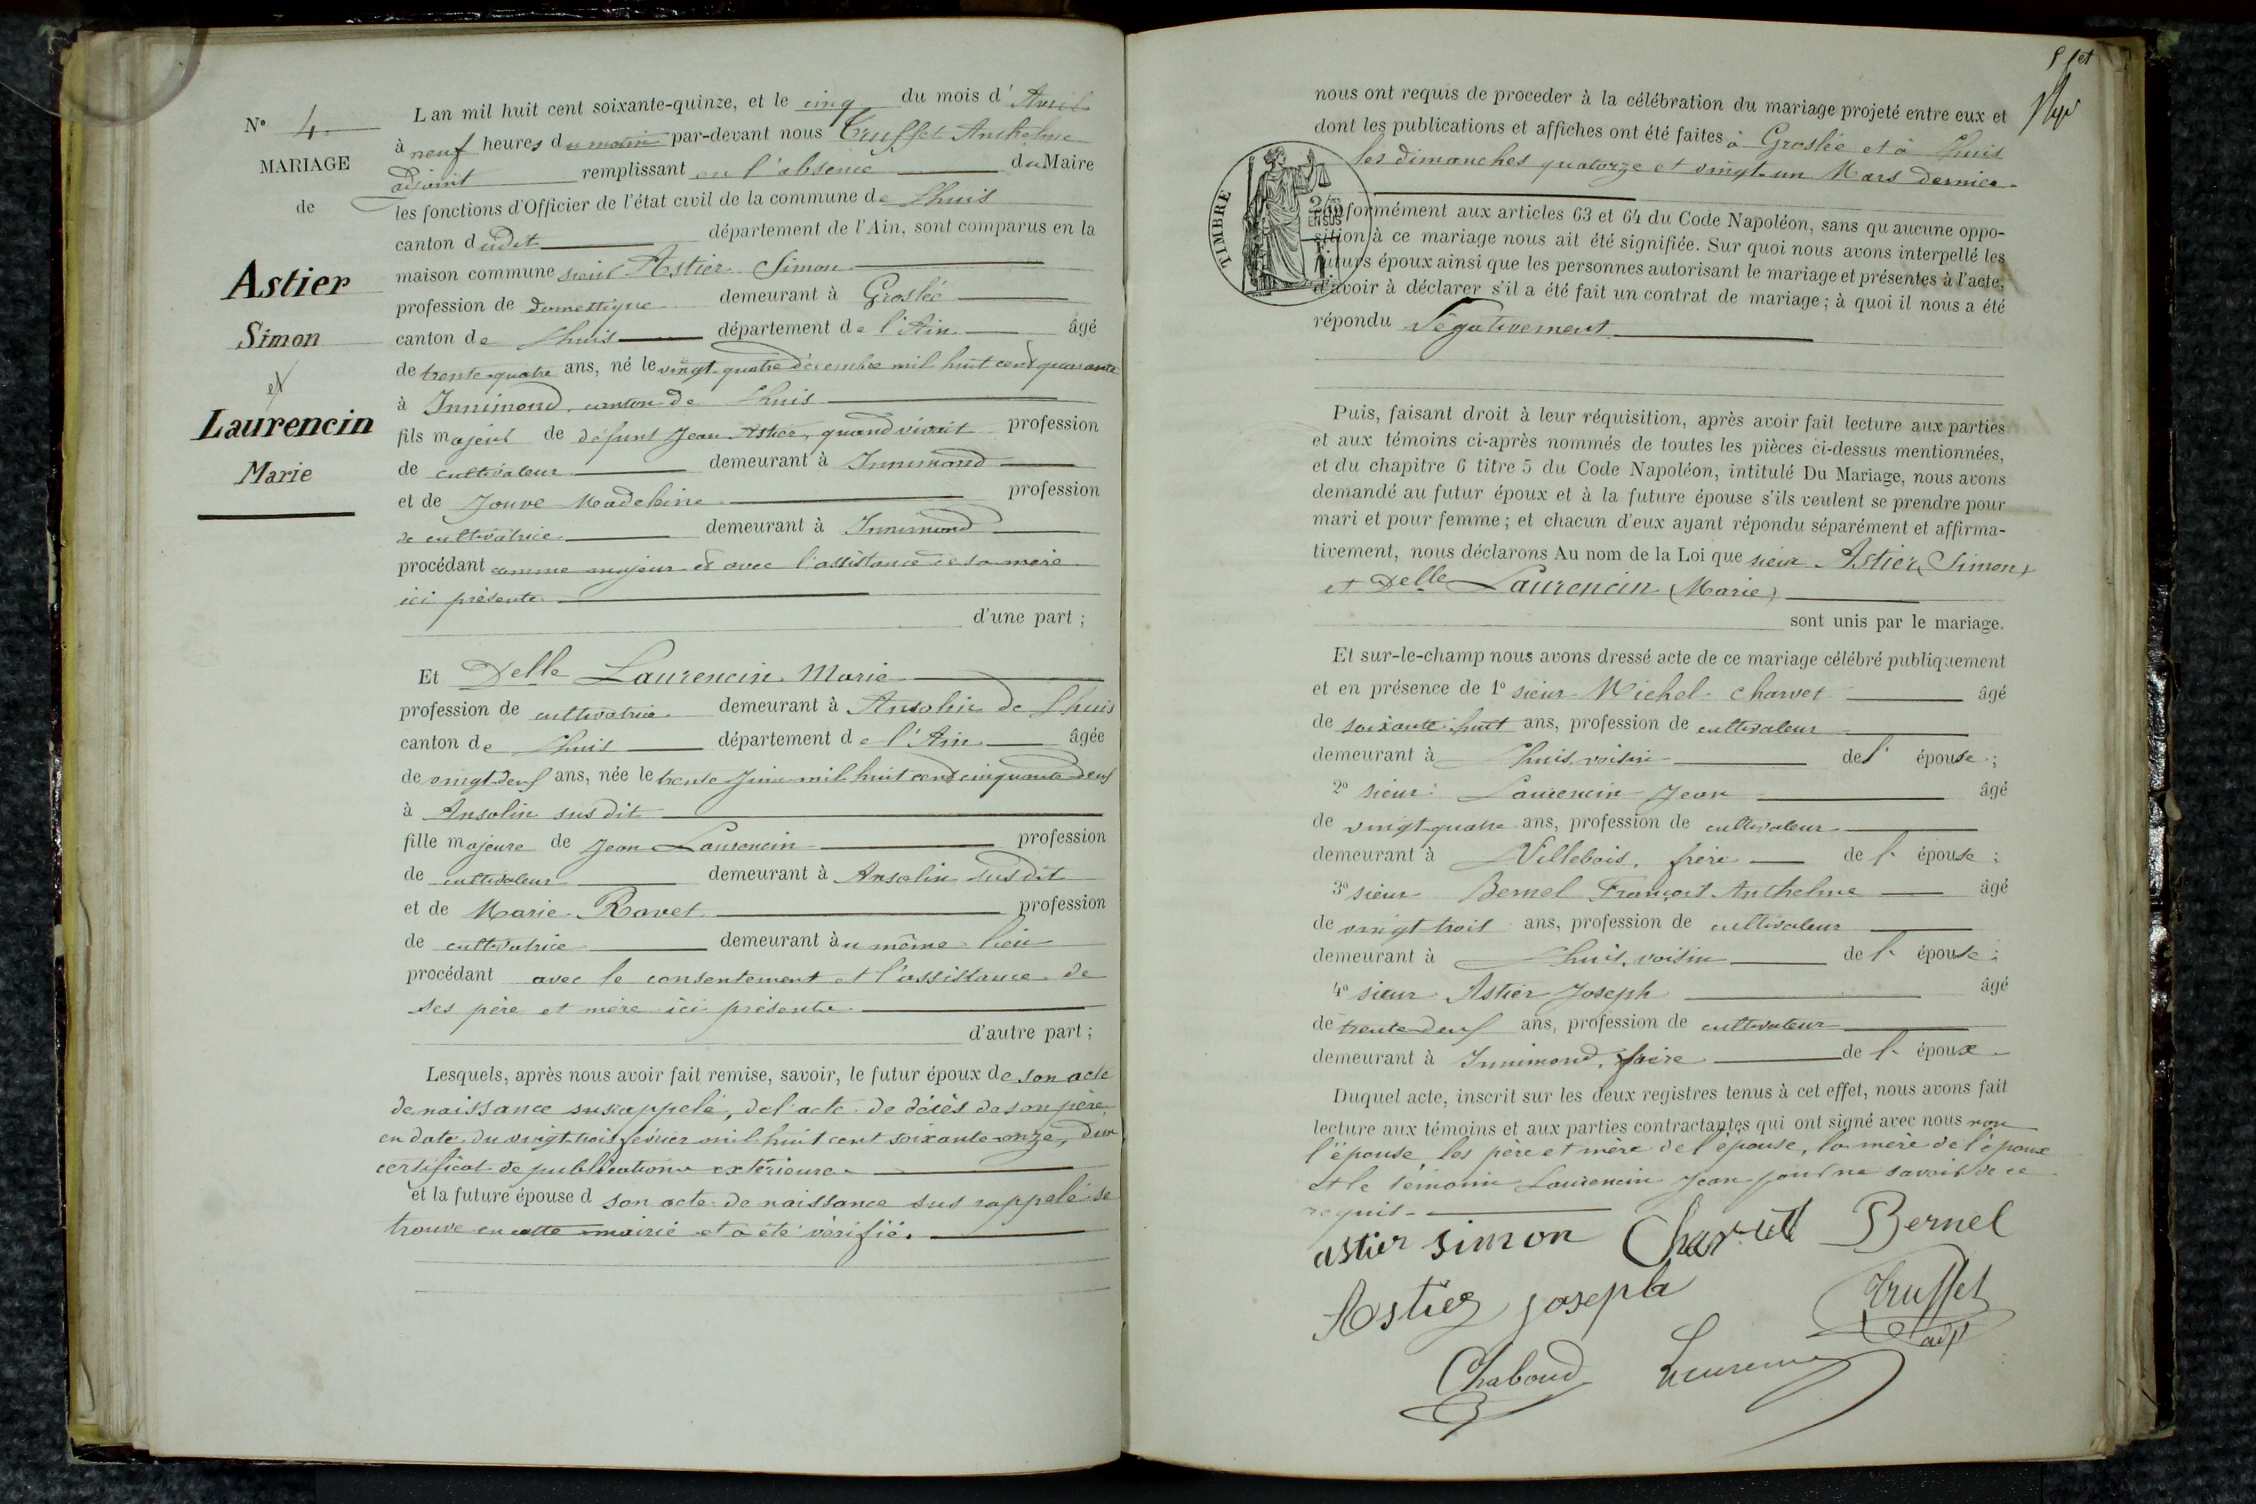 N° 4
MARIAGE
de
Astier
Simon
et
Laurencin
Marie
L an mil huit cent soixante-quinze, et le cinq du mois d' Avril
à neuf heures du matin par-devant nous Truffet Anthelme
adjoint remplissant en l'absence du Maire
les fonctions d'Officier de l'état civil de la commune de Lhuis
canton dudit département de l'Ain, sont comparus en la
maison commune sieur Astier Simon
profession de domestique demeurant à Groslée
canton de Lhuis département de l'Ain âgé
de trente-quatre ans, né le vingt-quatre décembre mil huit cent quarante
à Innimond, canton de Lhuis
fils majeur de défunt Jean Astier, quand vivait profession
de cultivateur demeurant à Innimond
et de Jouve Madeleine profession
de cultivatrice demeurant à Innimond
procédant comme majeur et avec l'assistance de sa mère
ici présente
d'une part ;
Et Delle Laurencin Marie
profession de cultivatrice demeurant à Ansolin de Lhuis
canton de Lhuis département de l'Ain âgée
de vingt deux ans, née le trente Juin mil huit cent cinquante deux
à Ansolin susdit
fille majeure de Jean Laurencin profession
de cultivateur demeurant à Ansolin susdit
et de Marie Ravet profession
de cultivatrice demeurant au même lieu
procédant avec le consentement et l'assistance de
ses père et mère ici présents
d'autre part ;
Lesquels, après nous avoir fait remise, savoir, le futur époux de son acte
de naissance susrappelé, de l'acte de décès de son père
en date du vingt-trois février mil huit cent soixante-onze, d'un
certificat de publications extérieures
et la future épouse d son acte de naissance sus rappelé se
trouve en cette mairie et a été vérifié.
nous ont requis de proceder à la célébration du mariage projeté entre eux et
dont les publications et affiches ont été faites à Groslée et à Lhuis
les dimanches quatorze et vingt-un Mars dernier
TIMBRE
conformément aux articles 63 et 64 du Code Napoléon, sans qu aucune oppo-
sition à ce mariage nous ait été signifiée. Sur quoi nous avons interpellé les
futurs époux ainsi que les personnes autorisant le mariage et présentes à l'acte,
d'avoir à déclarer s'il a été fait un contrat de mariage ; à quoi il nous a été
répondu Négativement
Puis, faisant droit à leur réquisition, après avoir fait lecture aux parties
et aux témoins ci-après nommés de toutes les pièces ci-dessus mentionnées,
et du chapitre 6 titre 5 du Code Napoléon, intitulé Du Mariage, nous avons
demandé au futur époux et à la future épouse s'ils veulent se prendre pour
mari et pour femme ; et chacun d'eux ayant répondu séparément et affirma-
tivement, nous déclarons Au nom de la Loi que sieur Astier (Simon)
et Delle Laurencin (Marie)
sont unis par le mariage.
Et sur-le-champ nous avons dressé acte de ce mariage célébré publiquement
et en présence de 1° sieur Michel Charvet âgé
de soixante-huit ans, profession de cultivateur
demeurant à Lhuis, voisin de l' épouse ;
2° sieur Laurencin Jean âgé
de vingt-quatre ans, profession de cultivateur
demeurant à Villebois, frère de l' épouse ;
3° sieur Bernel François Anthelme âgé
de vingt trois ans, profession de cultivateur
demeurant à Lhuis, voisin de l' épouse ;
4° sieur Astier Joseph âgé
de trente-deux ans, profession de cultivateur
demeurant à Innimond, frère de l' époux
Duquel acte, inscrit sur les deux registres tenus à cet effet, nous avons fait
lecture aux témoins et aux parties contractantes qui ont signé avec nous non
l'épouse, les père et mère de l'épouse, la mère de l'époux
et le témoin Laurencin Jean pour ne savoir de ce
requis
astier simon Charvet Bernel
Astier joseph Truffet
adjt
Chaboud Laurencin